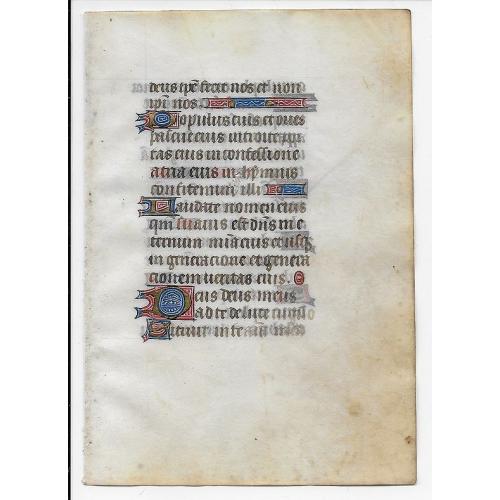 deus ip̄e fecit nos et non
ip̄i nos.
Populus eius et oues
pascue eius introite por
tas eius in confessione
atria eius in hymnis
confitemini illi
Laudate nomen eius
qm̄ suauis est dn̄s in e
ternum mīa eius et usq̄
in generacione et genera
cionem ueritas eius.
Deus deus meus
ad te de luce uigilo
Sitiuit in te aīa mea